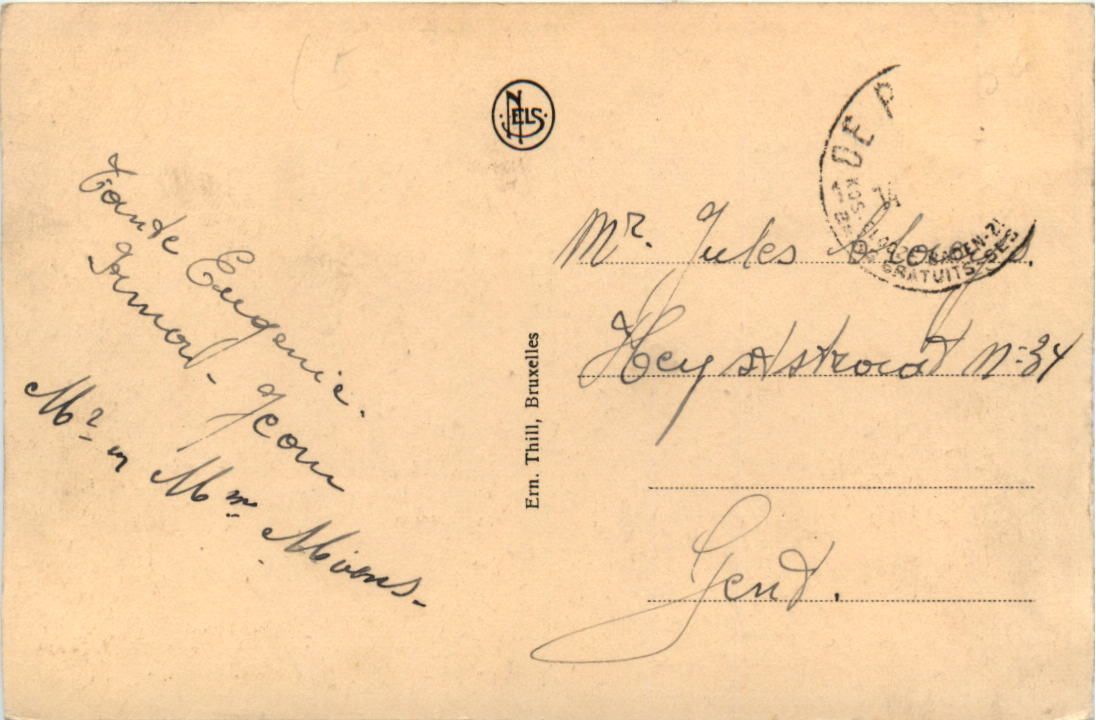 Tante Eugenie.
Jean
Mr en Mme
NELS
Ern. Thill, Bruxelles
DE P
14
GRATUITS
Mr. Jules
Heyststraat N=34
Gent.